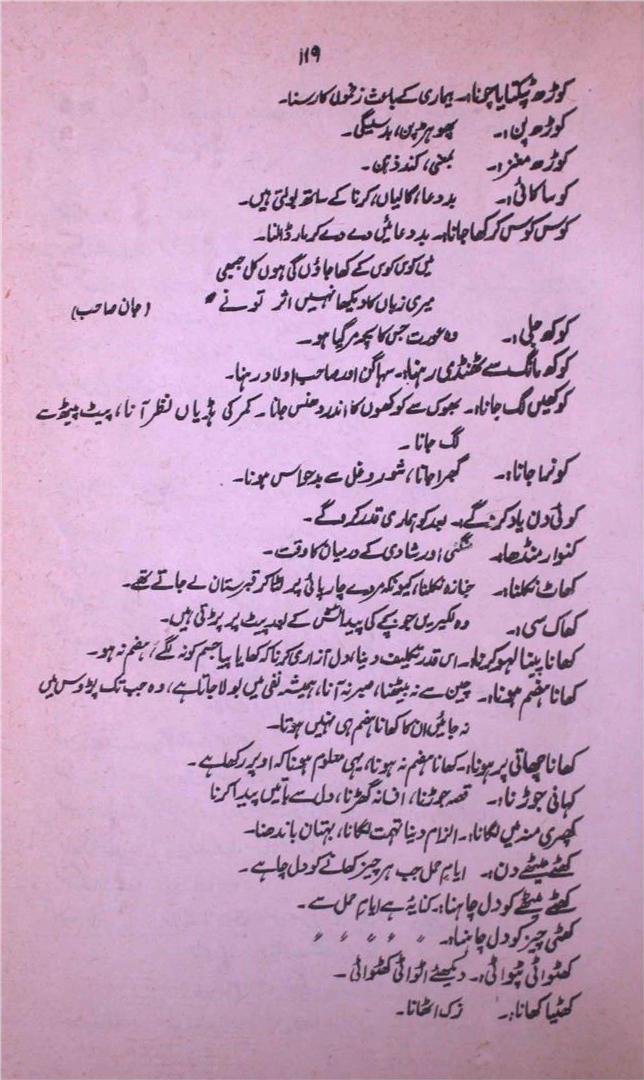 ۱۱۹
کوڑھ ٹپکنا یا چونا:۔ بیماری کے باعث زخموں کا رسنا۔
کوڑھ پن:۔ پھوہڑپن، بدسلیقگی۔
کوڑھ مغز:۔ غبی، کند ذہن۔
کوسا کاٹی:۔ بددعا، گالیاں، کرنا کے ساتھ بولتی ہیں۔
کوس کوس کر کھا جانا:۔ بددعائیں دے دے کر مار ڈالنا۔
میں کوس کوس کے کھا جاؤں گی ہوں کل جبھی
میری زباں کا دیکھا نہیں اثر تو نے (جان صاحب)
کوکھ جلی:۔ وہ عورت جس کا بچہ مر گیا ہو۔
کوکھ مانگ سے ٹھنڈی رہنا:۔ سہاگن اور صاحب اولاد رہنا۔
کوکھیں لگ جانا:۔ بھوک سے کوکھوں کا اندر دھنس جانا۔ کمر کی ہڈیاں نظر آنا، پیٹ پیٹھ سے
لگ جانا۔
کونما جانا:۔ گھبرا جانا، شور و غل سے بدحواس ہونا۔
کوئی دن یاد کرو گے:۔ بعد کو ہماری قدر کرو گے۔
کنوار منڈھا:۔ منگنی اور شادی کے درمیان کا وقت۔
کھاٹ نکلنا:۔ جنازہ نکلنا، کیونکہ مردے چارپائی پر لٹا کر قبرستان لے جاتے تھے۔
کھاک سی:۔ وہ لکیریں جو بچے کی پیدائش کے بعد پیٹ پر پڑتی ہیں۔
کھانا پینا لہو کرنا:۔ اس قدر تکلیف دینا، دل آزاری کرنا کہ کھایا پیا جسم کو نہ لگے، ہضم نہ ہو۔
کھانا ہضم ہونا:۔ چین سے نہ بیٹھنا، صبر نہ آنا، ہمیشہ نفی میں بولا جاتا ہے، وہ جب تک پڑوس میں
نہ جائیں ان کا کھانا ہضم ہی نہیں ہوتا۔
کھانا چھاتی پر ہونا:۔ کھانا ہضم نہ ہونا، یہی معلوم ہونا کہ اوپر رکھا ہے۔
کہانی جوڑنا:۔ قصہ جوڑنا، افسانہ گھڑنا، دل سے باتیں پیدا کرنا
کھچری منہ میں لگانا:۔ الزام دینا تہمت لگانا، بہتان باندھنا۔
کھٹے میٹھے دن:۔ ایامِ حمل جب ہر چیز کھانے کو دل چاہے۔
کھٹے میٹھے کو دل چاہنا:۔ کنایہ ہے ایامِ حمل سے۔
کھٹی چیز کو دل چاہنا:۔ ״ ״ ״ ״ ״
کھٹوائی پٹوائی:۔ دیکھئے اٹوائی کھٹوائی۔
کھٹیا کھانا:۔ زک اٹھانا۔